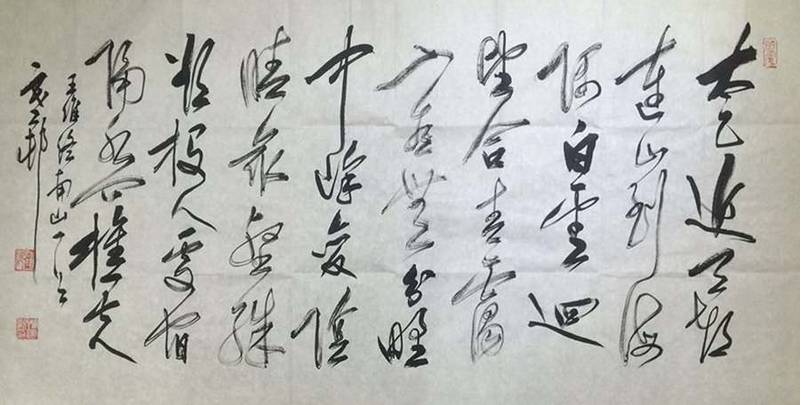 太乙近天都
連山到海
隅白雲迴
望合青靄
入看無分野
中峰變陰
晴衆壑殊
欲投人處宿
隔水問樵夫
王維終南山一首